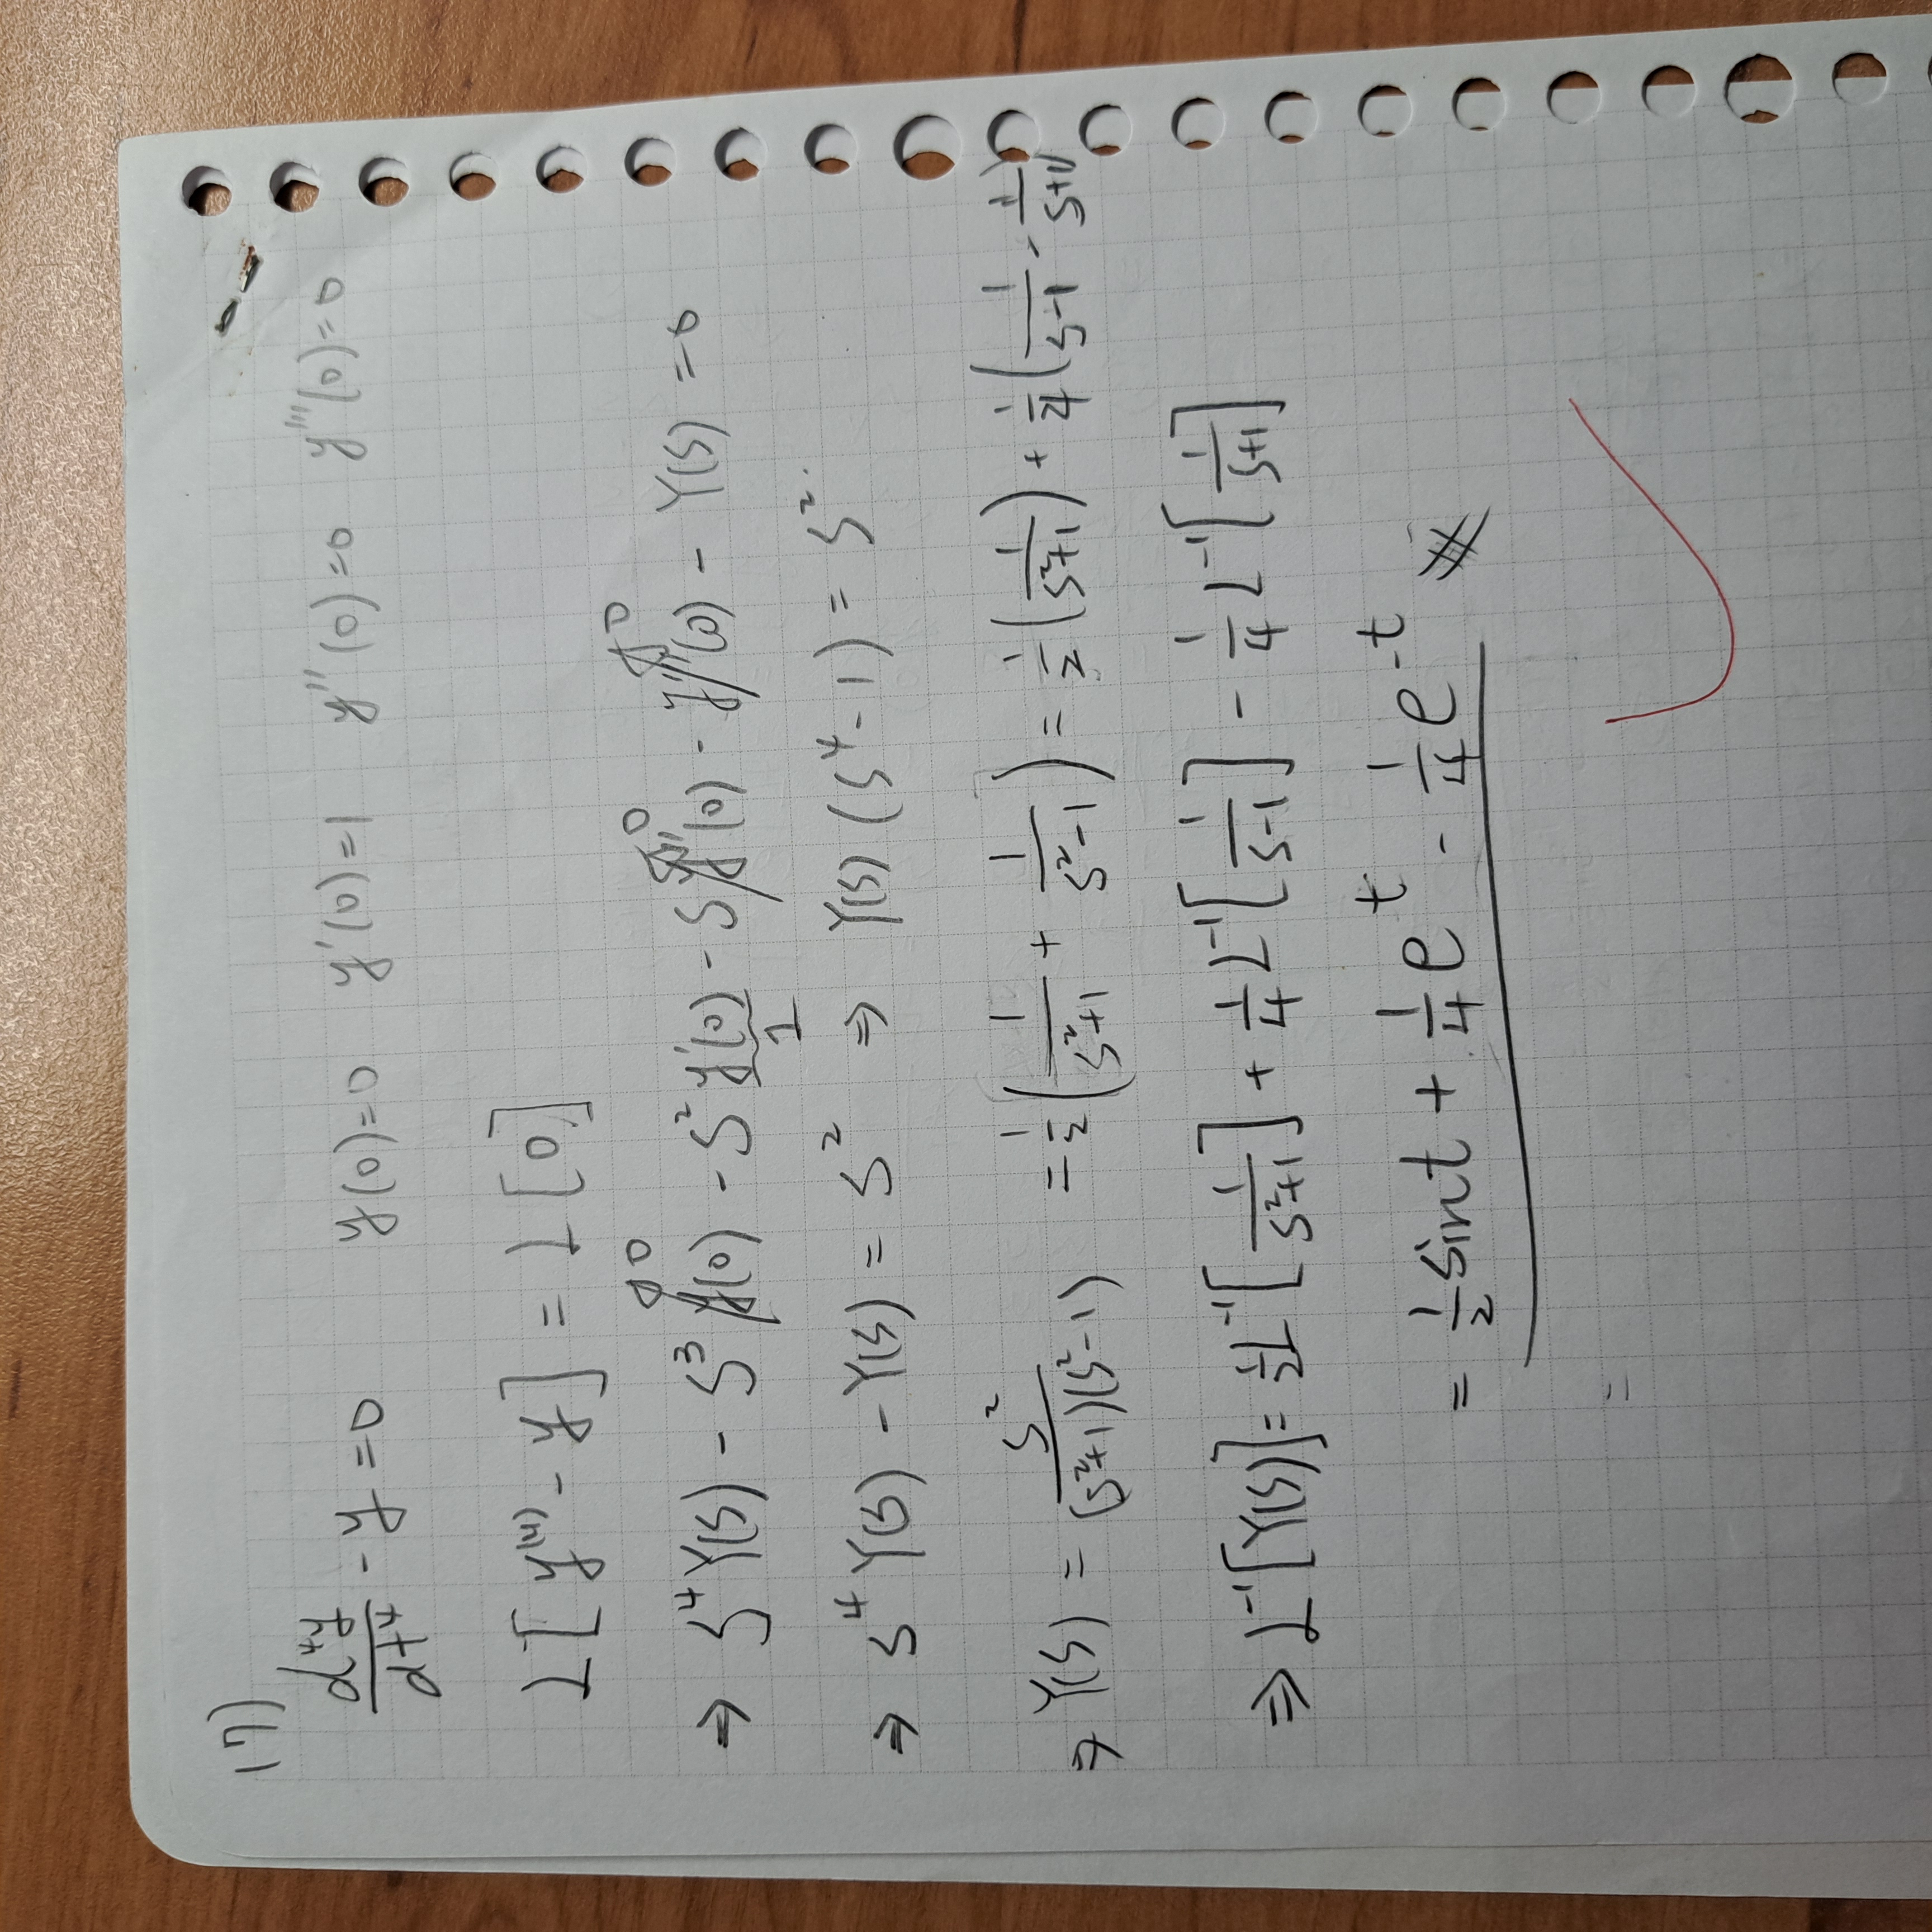 (4)
d⁴y/dt⁴ - y = 0 y(0)=0 y'(0)=1 y''(0)=0 y'''(0)=0
L[y⁽⁴⁾ - y] = L[0]
⇒ S⁴Y(S) - S³y(0) - S²y'(0) - Sy''(0) - y'''(0) - Y(S) = 0
0 1 0 0
⇒ S⁴Y(S) - Y(S) = S² ⇒ Y(S)(S⁴-1) = S²
⇒ Y(S) = S²/(S²+1)(S²-1) = 1/2(1/S²+1 + 1/S²-1) = 1/2(1/S²+1) + 1/4(1/S-1 - 1/S+1)
⇒ L⁻¹[Y(S)] = 1/2L⁻¹[1/S²+1] + 1/4L⁻¹[1/S-1] - 1/4L⁻¹[1/S+1]
= 1/2sint + 1/4e^t - 1/4e^-t #
=